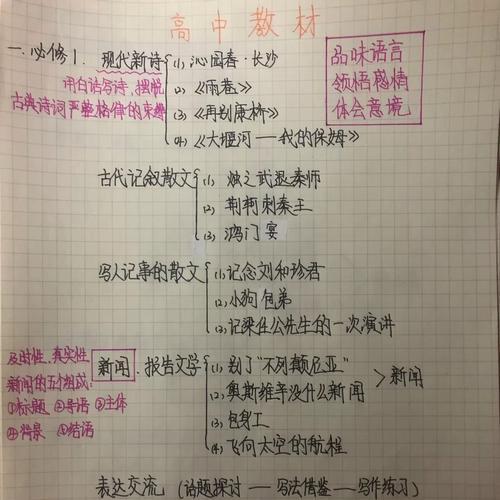 高中教材
一.必修1. 现代新诗 (1) 沁园春·长沙
(2) 《雨巷》
(3) 《再别康桥》
(4) 《大堰河——我的保姆》
用白话写诗,摆脱
古典诗词严整格律的束缚
品味语言
领悟感情
体会意境
古代记叙散文 (1) 烛之武退秦师
(2) 荆轲刺秦王
(3) 鸿门宴
写人记事的散文 (1) 记念刘和珍君
(2) 小狗包弟
(3) 记梁任公先生的一次演讲
及时性、真实性
新闻的五个组成:
①标题 ②导语 ③主体
④背景 ⑤结语
新闻、报告文学 (1) 别了"不列颠尼亚"
(2) 奥斯维辛没什么新闻
> 新闻
(3) 包身工
(4) 飞向太空的航程
表达交流 (话题探讨——写法借鉴——写作练习)